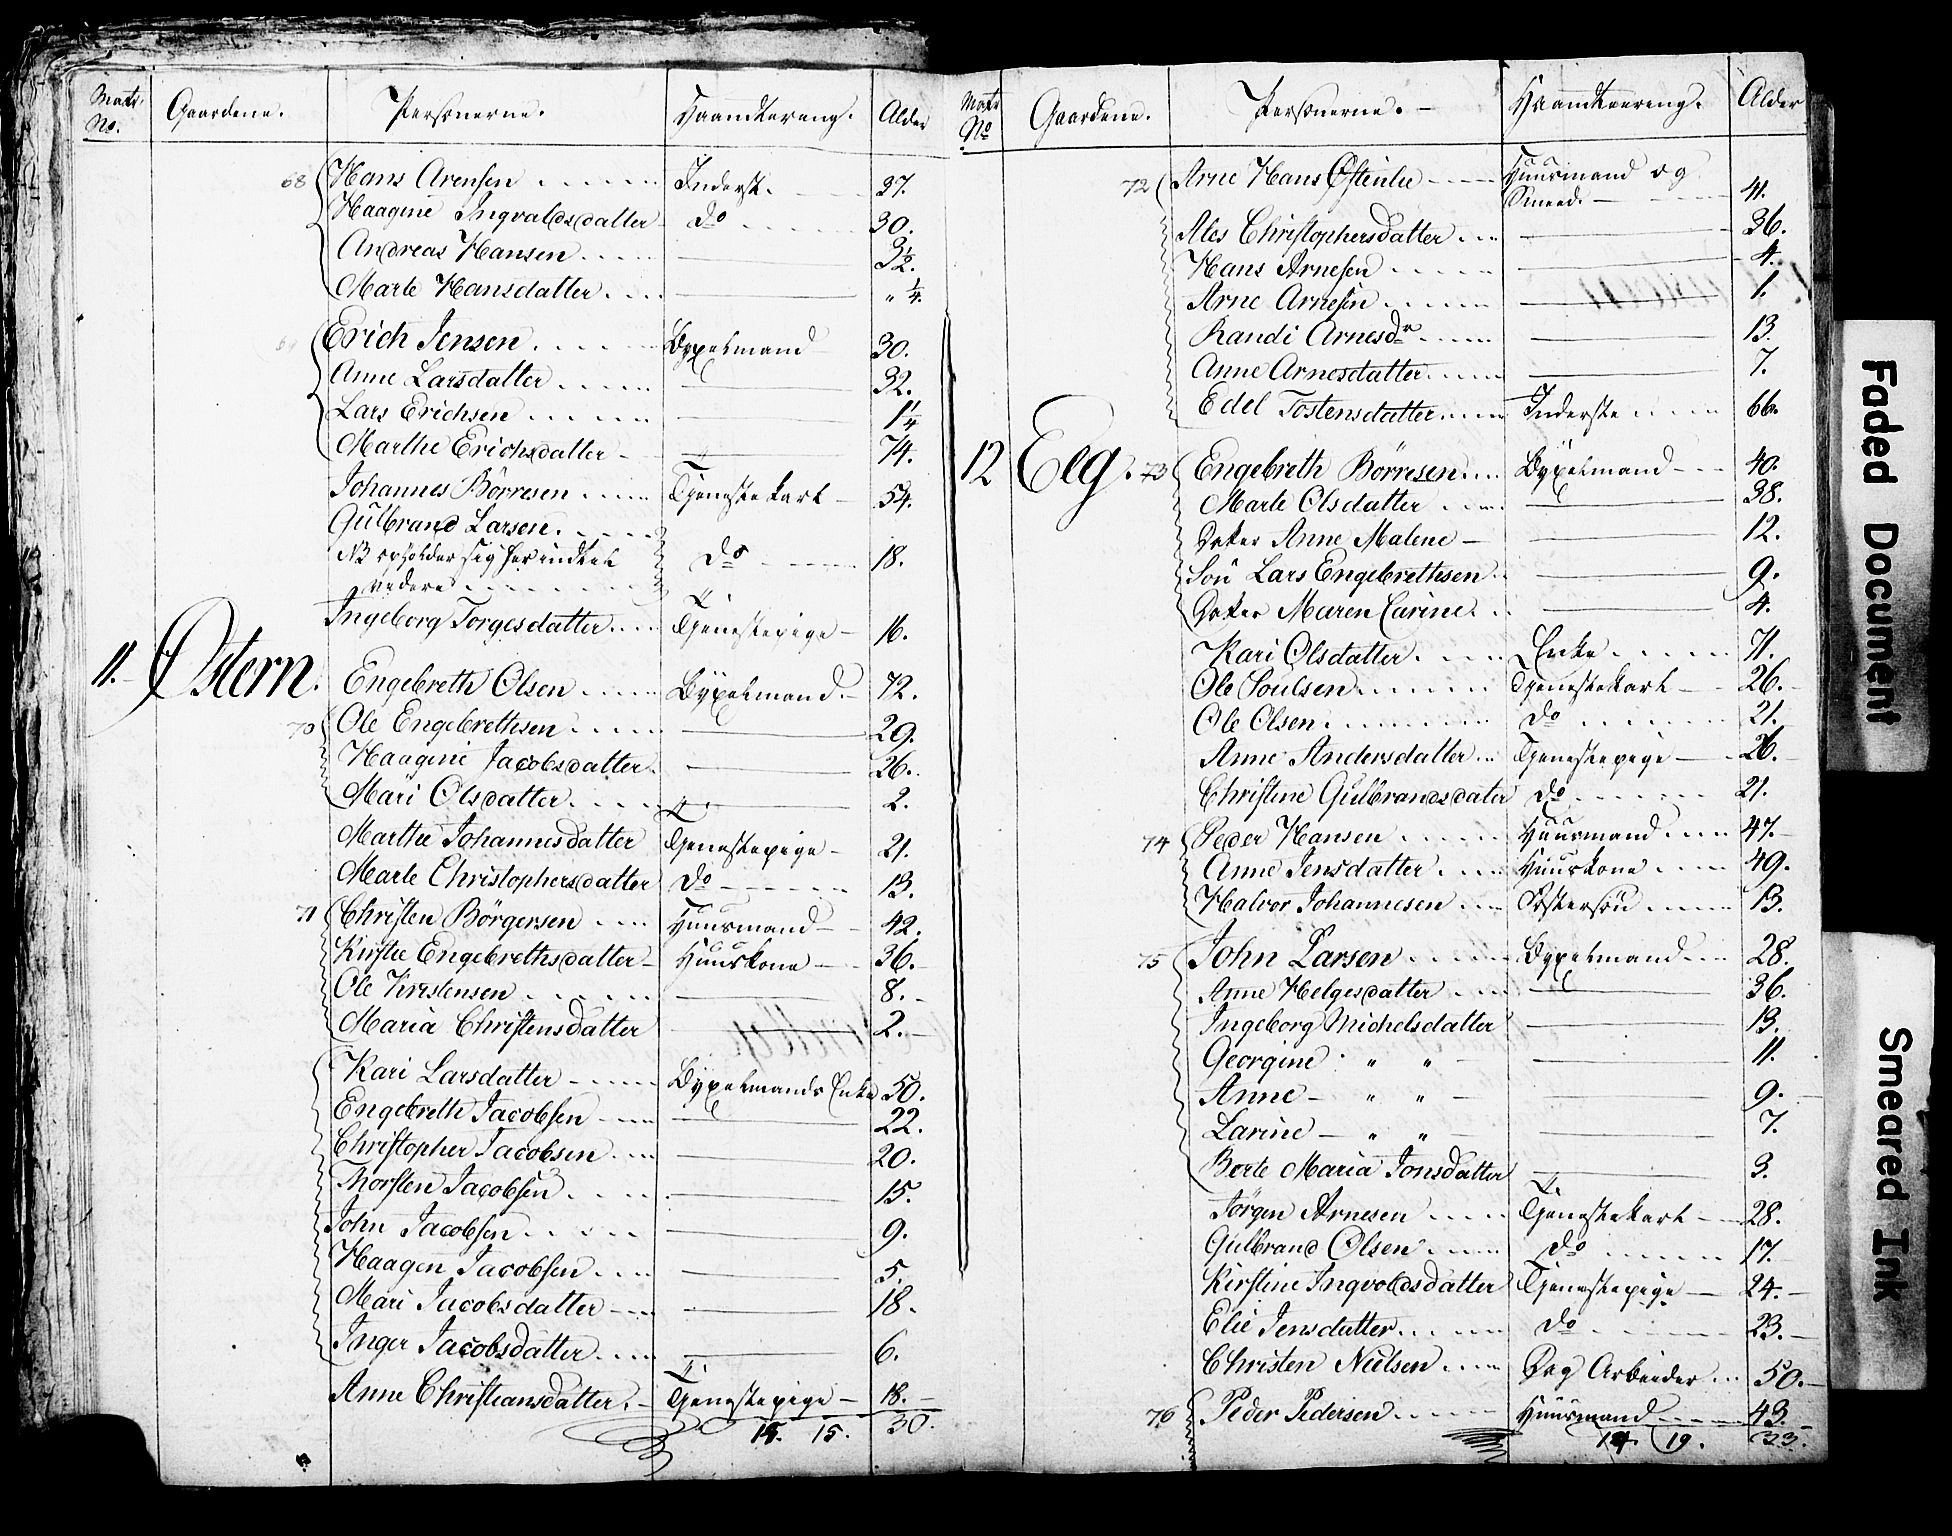 Matr. No. Gaardene. Personerne. Haandtering. Alder
68 Hans Arensen Inderst. 37.
Haagine Ingvaldsdatter do 30.
Andreas Hansen 3 1/2.
Marte Hansdatter " 1/4.
Erich Jensen Bygselmand 30.
Anne Larsdatter 32.
Lars Erichsen 1 1/4
Marthe Erichsdatter 74.
Johannes Börresen Tjenestekarl 54.
Gulbrand Larsen.
NB opholder sig her indtil do 18.
videre
Ingeborg Torgersdatter Tjenestepige 16.
11. Østern. Engebreth Olsen Bygselmand. 72.
70 Ole Engebrethsen 29.
Haagine Jacobsdatter. 26.
Mari Olsdatter 2.
Marthe Johannesdatter Tjenestepige 21.
Marte Christophersdatter do 13.
71 Christen Börgersen Huusmand 42.
Kirstie Engebrethsdatter Huuskone 36.
Ole Kristensen 8.
Maria Christensdatter 2.
Kari Larsdatter Bygselmands Enke 50.
Engebreth Jacobsen 22.
Christopher Jacobsen 20.
Thorsten Jacobsen 15.
John Jacobsen 9.
Haagen Jacobsen 5.
Mari Jacobsdatter 18.
Inger Jacobsdatter 6.
Anne Christiansdatter. Tjenestepige 18.
15. 15. 30.
Matr No Gaardene. Personerne. Haandteering. Alder
72 Arne Hans Østenlie Huusmand og
Smeed. 41.
Ales Christophersdatter 36.
Hans Arnesen 4.
Arne Arnesen 1.
Randi Arnesdr 13.
Anne Arnesdatter 7.
Edel Tostensdatter Inderste 66.
12 Elg. 73 Engebreth Börresen Bygselmand 40.
Marte Olsdatter 38.
Datter Anne Malene 12.
Sön Lars Engebrethsen 9.
Datter Maren Carine. 4.
Kari Olsdatter Enke 71.
Ole Poulsen Tjenestekarl 26.
Ole Olsen do 21.
Anne Andersdatter Tjenestepige 26.
Christine Gulbrandsdater do 21.
74 Peder Hansen Huusmand 47.
Anne Jensdatter Huuskone 49.
Halvor Johannesen Fostersön 13.
75 John Larsen Bygselmand 28.
Anne Helgesdatter 36.
Ingeborg Michelsdatter 13.
Georgine " " 11.
Anne " " 9.
Larine " " 7.
Berte Maria Jonsdatter 3.
Jörgen Arnesen Tjenestekarl 28.
Gulbrand Olsen do 17.
Kirstine Ingvoldsdatter Tjenestepige 24.
Elie Jensdatter do 23.
Christen Nielsen Dag Arbeider 50.
76 Peder Pedersen Huusmand 43.
14. 19. 33.
Faded Document
Smeared Ink